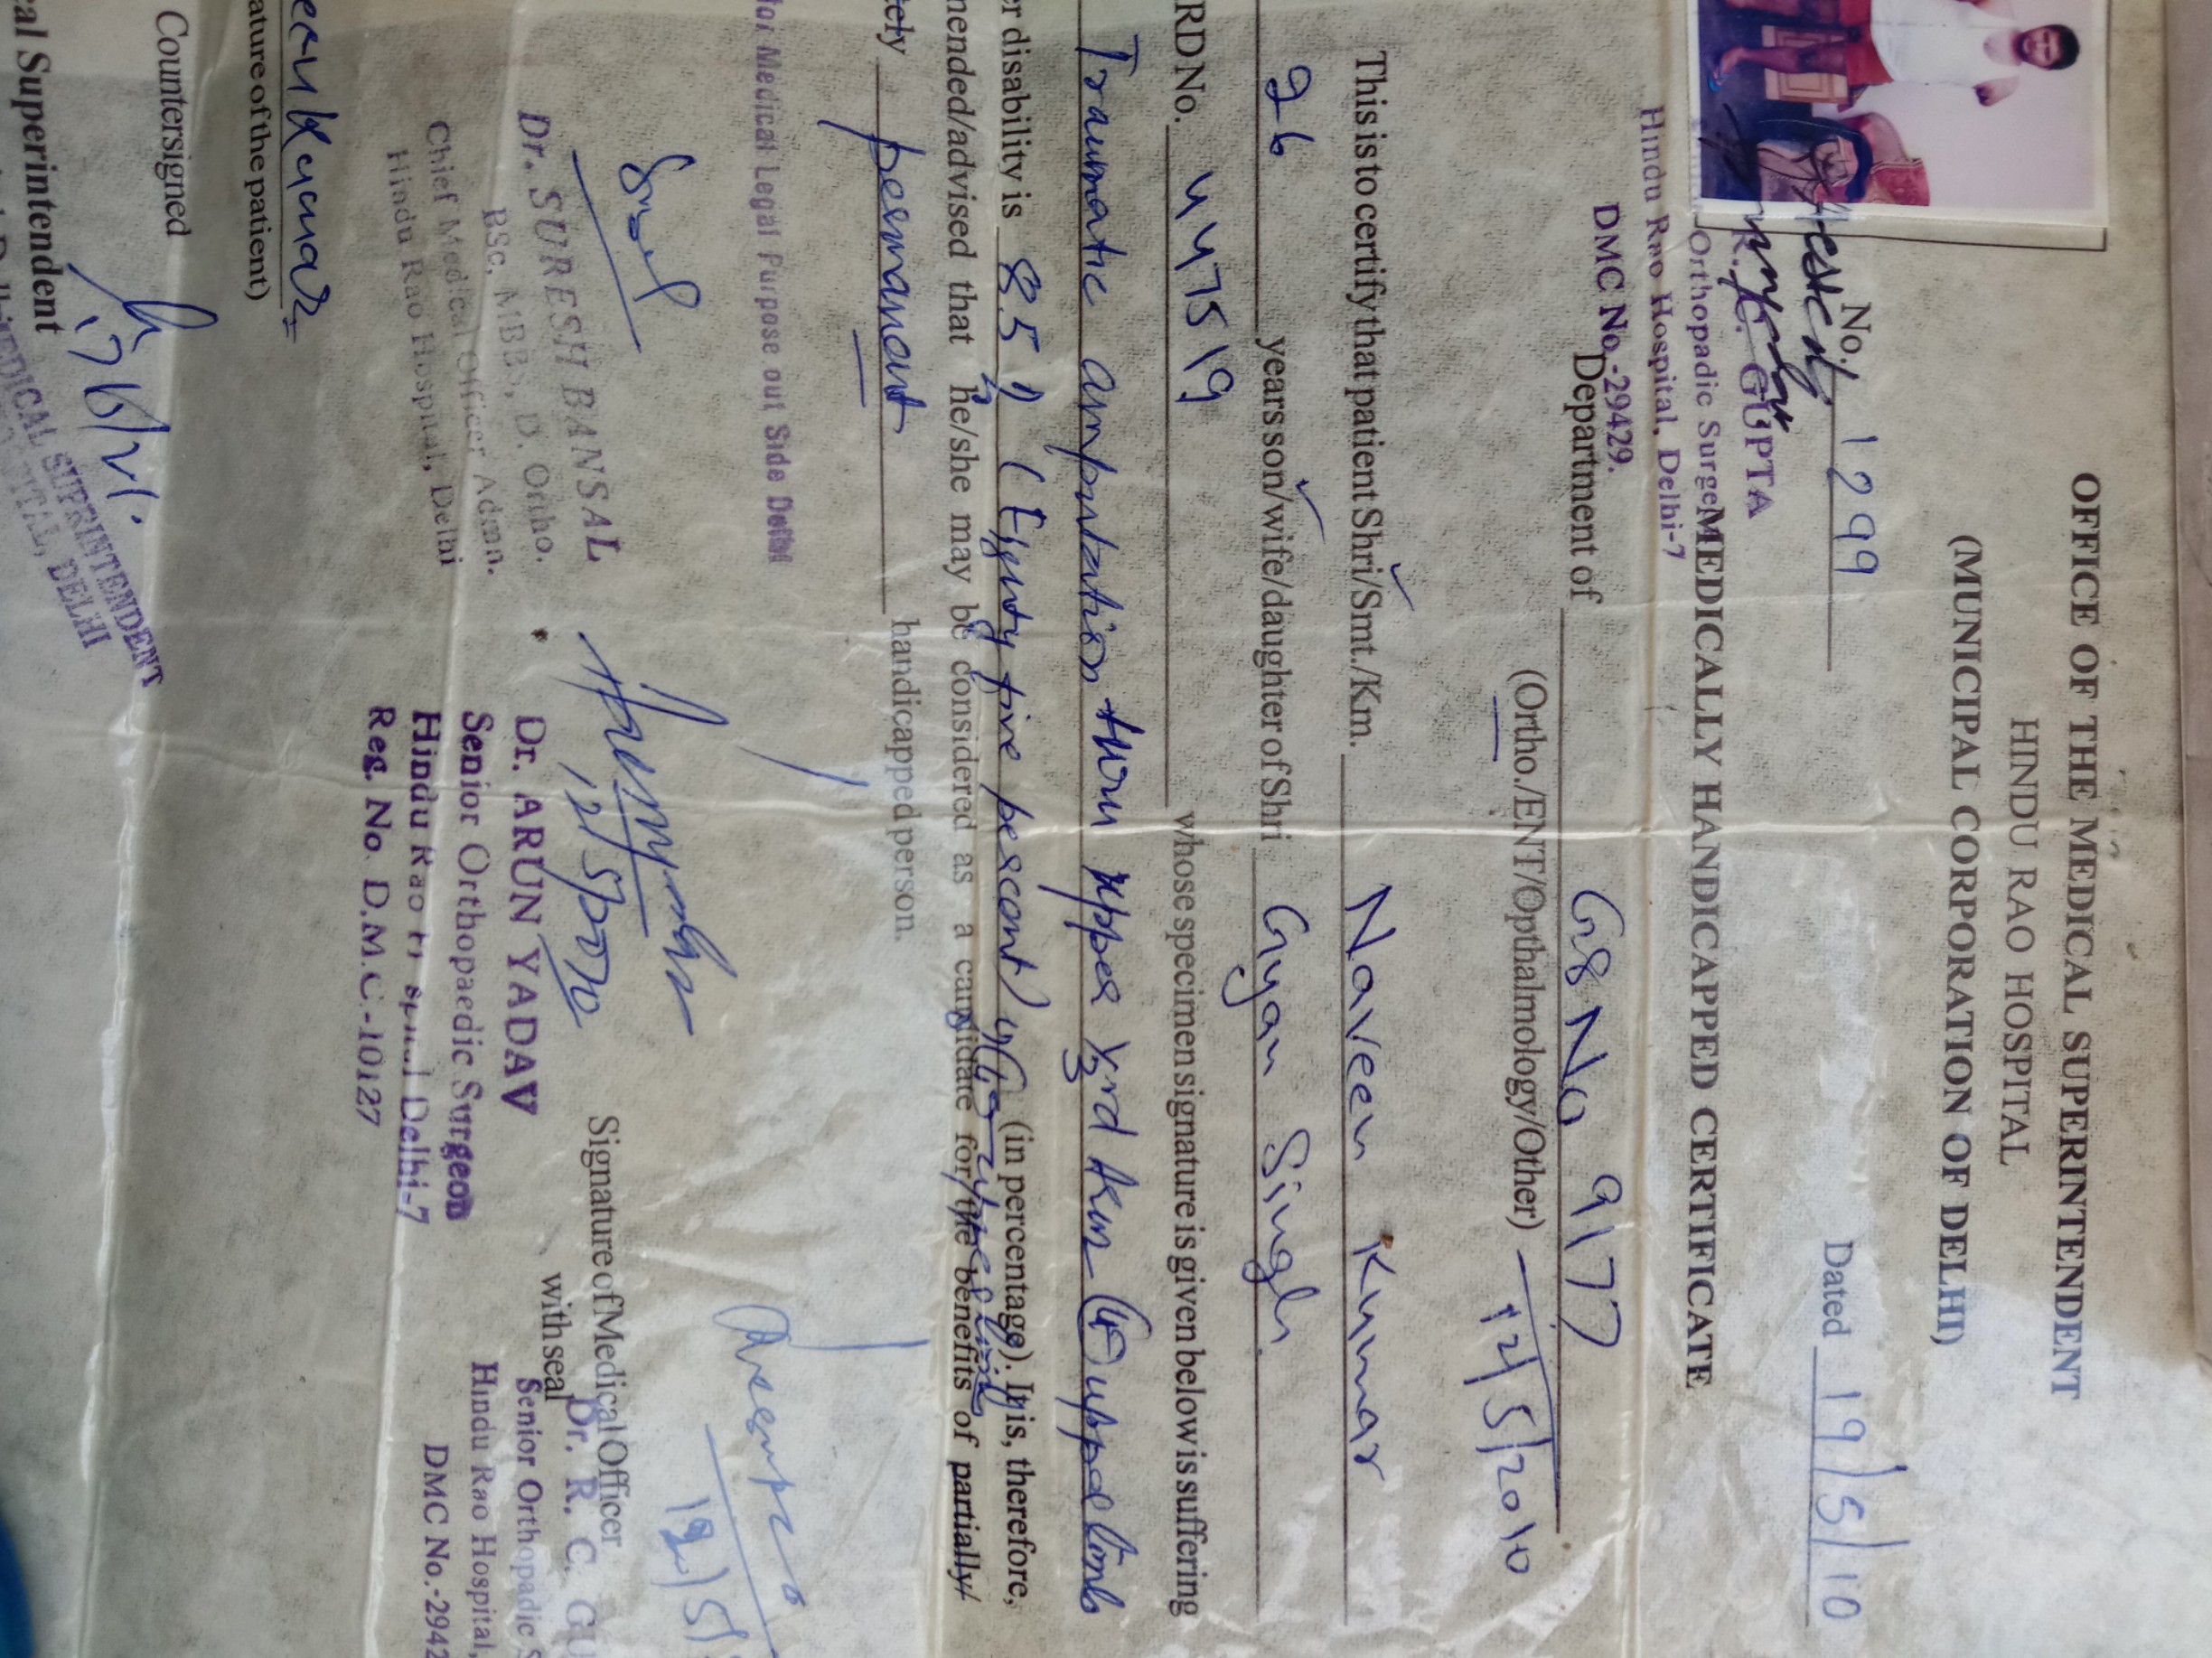 OFFICE OF THE MEDICAL SUPERINTENDENT
HINDU RAO HOSPITAL
(MUNICIPAL CORPORATION OF DELHI)
No. 1299
Dated 19/5/10
R. C. GUPTA
Orthopadic Surge
Hindu Rao Hospital, Delhi-7
DMC No.-29429.
MEDICALLY HANDICAPPED CERTIFICATE
Department of GB No 9177
(Ortho./ENT/Opthalmology/Other) 12/5/2010
This is to certify that patient Shri/Smt./Km. Naveen Kumar
26 years son/wife/daughter of Shri Gyan Singh.
RD No. 447519 whose specimen signature is given below is suffering
Traumatic amputation upper 1/3rd upper limb
er disability is 85 % (Eighty five percent) (in percentage). It is, therefore,
mended/advised that he/she may be considered as a candidate for the benefits of partially/
tely permanent handicapped person.
for Medical Legal Purpose out Side Delhi
Dr. SURESH BANSAL
BSc. MBBS, D. Ortho.
Chief Medical Officer Admn.
Hindu Rao Hospital, Delhi
12/5/2010
Dr. ARUN YADAV
Senior Orthopaedic Surgeon
Hindu Rao Hospital Delhi-7
Reg. No. D.M.C.-10127
Signature of Medical Officer
with seal
Dr. R. C. GU
Senior Orthopadic S
Hindu Rao Hospital,
DMC No.-2942
een Kumar
ature of the patient)
Countersigned
cal Superintendent
MEDICAL SUPRINTENDENT
DELHI